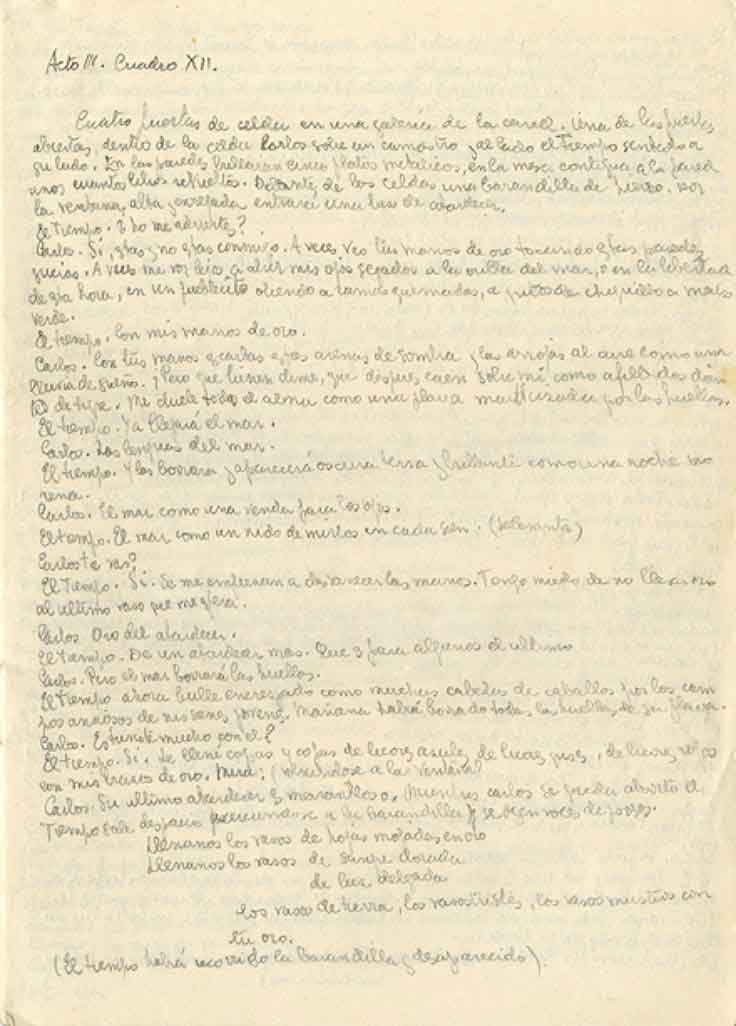 Acto III. Cuadro XII.
Cuatro puertas de celda en una galería de la carcel. Una de las puertas
abiertas, dentro de la celda Carlos sobre un camastro y al lado el tiempo sentado a
su lado. En las paredes brillaran cinco platos metalicos, en la mesa contigua a la pared
unos cuantos libros revueltos. Delante de las celdas una barandilla de hierro. Por
la ventana alta y enrejada entrará una luz de atardecer.
El Tiempo. ¿No me adviertes?
Carlos. Sí, estas y no estas conmigo. A veces veo tus manos de oro tocando estas paredes
sucias. A veces me voy lejos, a abrir mis ojos segados a la orilla del mar, o en la libertad
de esta hora, en un pueblecito oliendo a ramas quemadas, a maiz
verde.
El tiempo. Con mis manos de oro.
Carlos. Con tus manos apartas estas arenas de sombra y las arrojas al aire como una
lluvia de sueño. ¿Pero que tienen dime, que despues caen sobre mi como afilados
de tigre. Me duele toda el alma como una playa martirizada por las huellas.
El tiempo. Ya llegará el mar.
Carlos. Las lenguas del mar.
El tiempo. Y las borrara y aparecerá oscura tersa y brillante como una noche mo
rena.
Carlos. El mar como una venda para los ojos.
El tiempo. El mar como un nido de mirlos en cada sien. (Se levanta)
Carlos te vas?
El Tiempo. Sí. Se me empiezan a desvanecer las manos. Tengo miedo de no llegar
al ultimo vaso que me espera.
Carlos Oro del atardecer.
El tiempo. De un atardecer mas. Que es para algunos el ultimo
Carlos. Pero el mar borrará las huellas.
El tiempo ahora bulle encrespado como muchas cabezas de caballos por los cam
pos de sus sienes jovenes. Mañana habrá borrado todas las huellas de su playa.
Carlos. Estuviste mucho con el?
El tiempo. Sí. Le llené copas y copas de licores azules, de licores grises, de licores rojos
con mis brazos de oro. Mira: (volviendose a la ventana)
Carlos. Su ultimo atardecer es maravilloso. Mientras Carlos se queda absorto el
Tiempo sale despacio a la barandilla y se oyen voces de presos.
Llenanos los vasos de hojas mojadas en oro
Llenanos los vasos de sangre dorada
de luz delgada
los vasos de tierra, los vasos tristes, los vasos mustios con
tu oro.
(El tiempo habrá recorrido la barandilla y desaparecido).